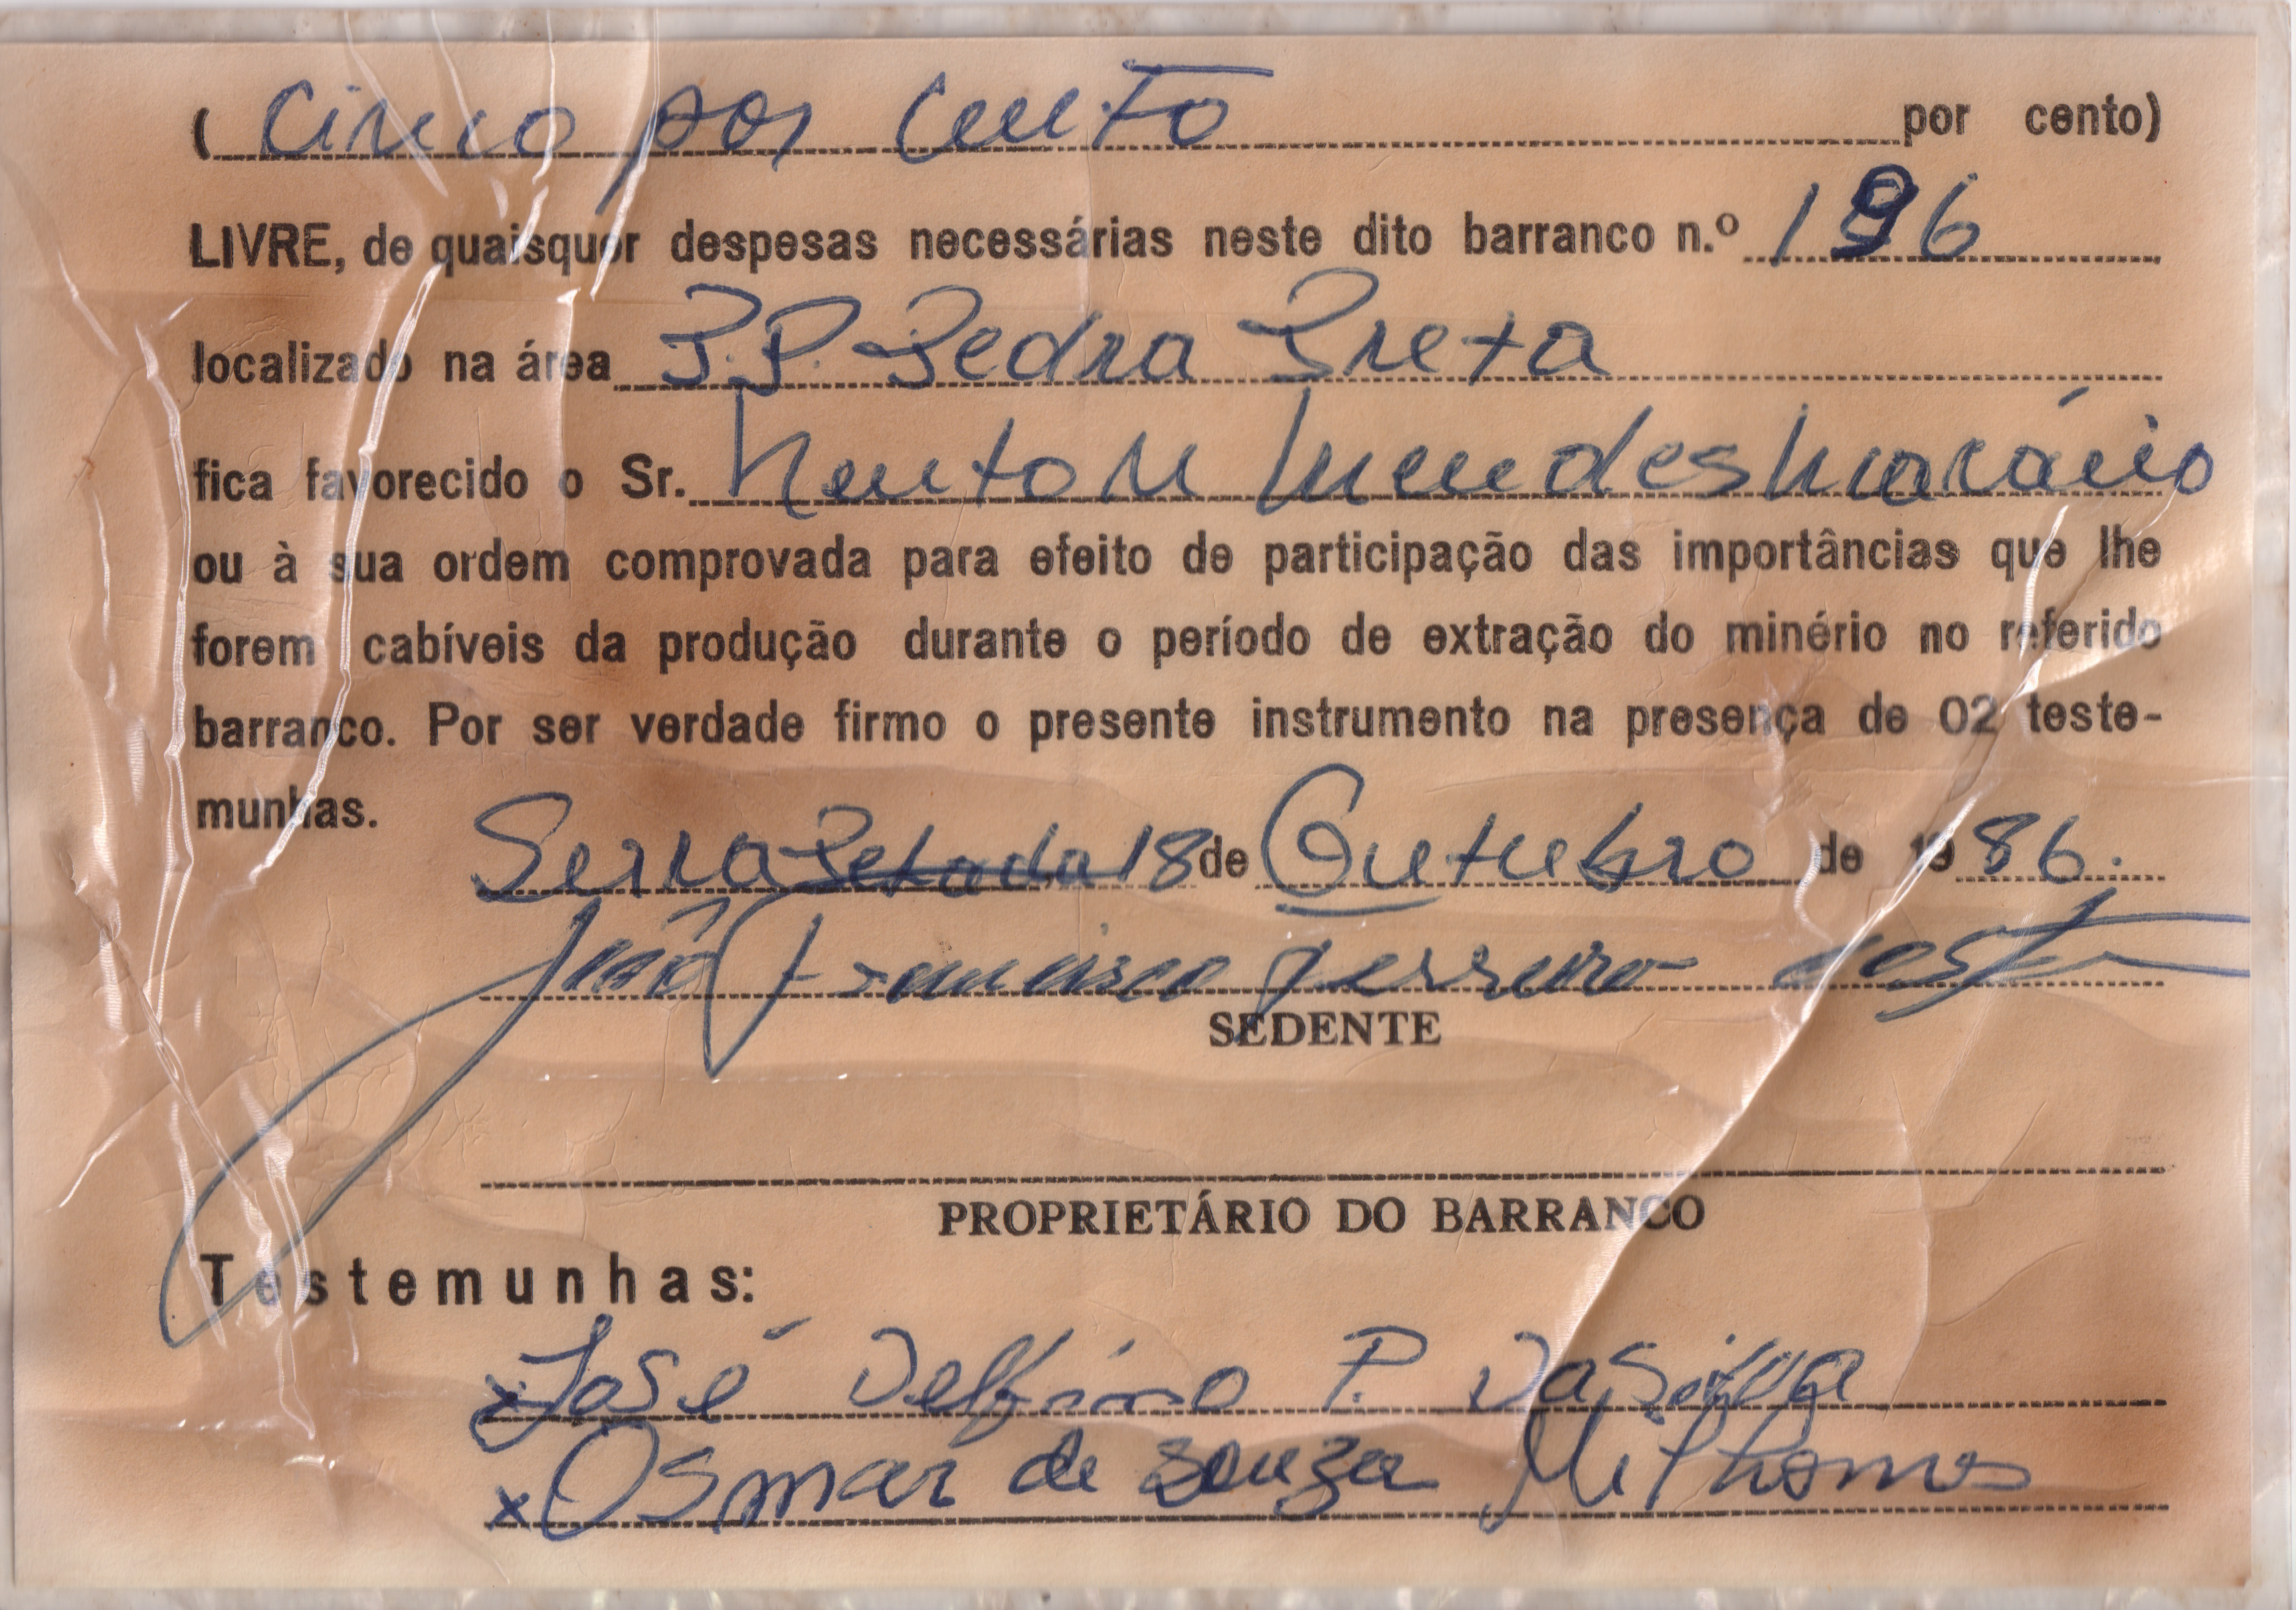 ( Cinco por cento por cento)
LIVRE, de quaisquer despesas necessárias neste dito barranco n.º 196
localizado na área P.P. Pedra Preta
fica favorecido o Sr. Newton Mendes
ou à sua ordem comprovada para efeito de participação das importâncias que lhe
forem cabíveis da produção durante o período de extração do minério no referido
barranco. Por ser verdade firmo o presente instrumento na presença de 02 teste-
munhas.
Serra Pelada 18 de Outubro de 19 86.
João Francisco Ferreira Costa
SEDENTE
PROPRIETÁRIO DO BARRANCO
Testemunhas:
x José Delfino P. da Silva
x Osmar de Souza Milhomes